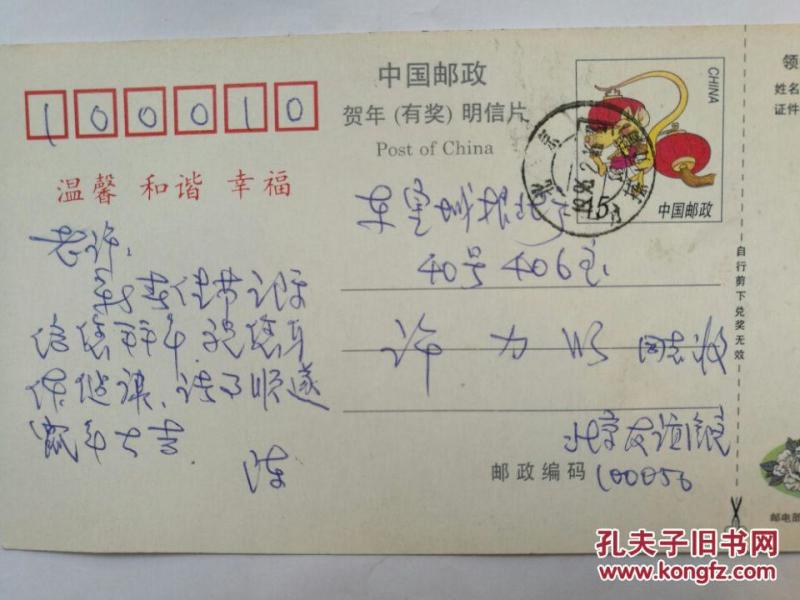 100010
中国邮政
贺年(有奖)明信片
Post of China
温馨 和谐 幸福
CHINA
15分
中国邮政
北京
1996.2
领
姓名
证件
自行剪下兑奖无效
东皇城根北
40号406室
许力 同志收
北京友谊
邮政编码 100050
老许:
新春佳节
给您拜年 祝您身
体健康、诸事顺遂
鼠年大吉
邮电部
孔夫子旧书网
www.kongfz.com